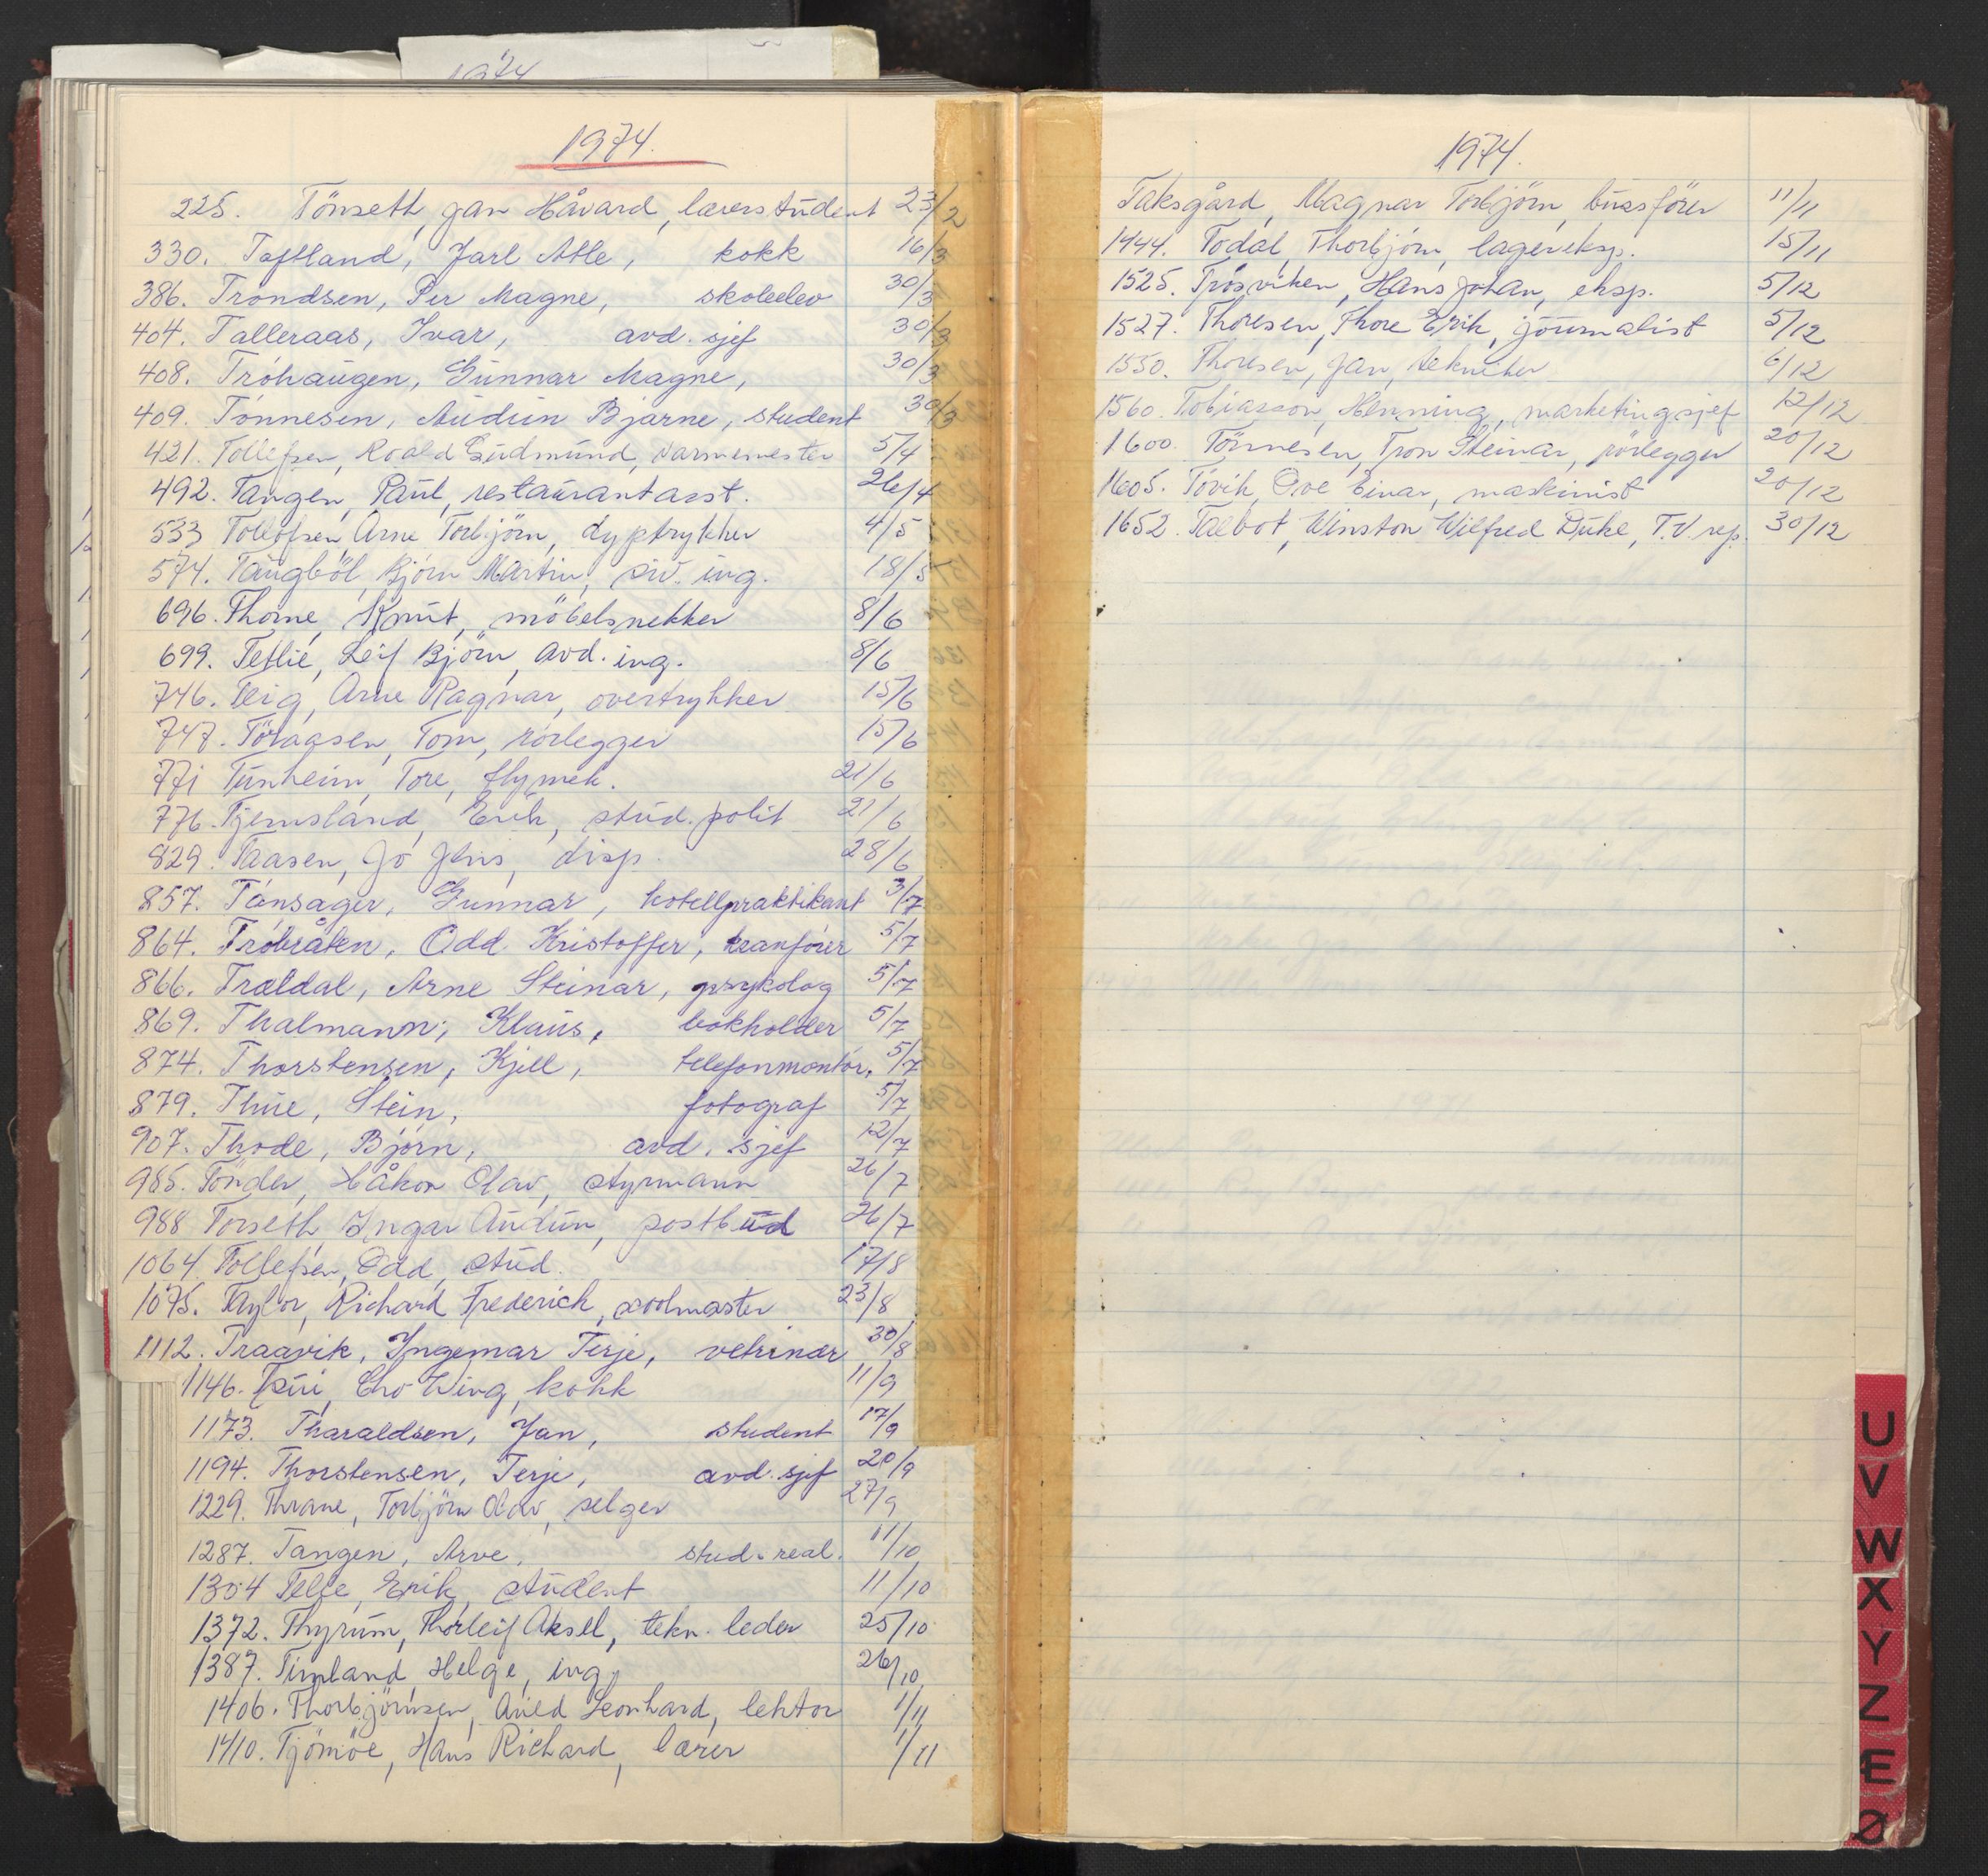 1974
1974.
225. Tönseth, Jan Håvard, lærerstudent 23/2
330. Taftland, Jarl Atle, kokk 16/3
386. Trondsen, Per Magne, skoleelev 30/3
404. Talleraas, Ivar, avd. sjef 30/3
408. Tróhaugen, Gunnar Magne, 30/3
409. Tónnesen, Audun Bjarne, student 30/3
421. Tollefsen, Roald Gudmund, varmemester 5/4
492. Tangen, Paul, restaurantasst. 26/4
533 Tollefsen Arne Torbjörn, dyptrykker 4/5
574. Taugböl, Björn Martin, siv. ing. 18/5
696. Thorne, Knut, möbelsnekker 8/6
699. Tetlie, Leif Björn, avd. ing. 8/6
746. Teig, Arne Ragnar, overtrykker 15/6
747. Töraasen, Tom, rörlegger 15/6
771 Tunheim, Tore, flymek. 21/6
776. Tjemsland, Erik, stud. polit 21/6
829. Taasen, Jo Jens, disp. 28/6
857. Tónsager, Gunnar, hotellpraktikant 3/7
864. Tróbråten, Odd Kristoffer, kranfórer 5/7
866. Trældal, Arne Steinar, psykolog 5/7
869. Thalmann, Klaus, bokholder 5/7
874. Thorstensen, Kjell, telefonmontór. 5/7
879. Thue, Stein, fotograf 5/7
907. Thode, Bjórn, avd. sjef 12/7
985. Tönder, Håkon Olav, styrmann 26/7
988 Torseth, Ingar Audun, postbud 26/7
1064. Tollefsen, Odd, stud. 17/8
1075. Taylor, Richard Frederick, soolmaster 23/8
1112. Traavik, Ingemar Terje, vetrinær 30/8
1146. Tsui, Cho Wing, kokk 11/9
1173. Tharaldsen, Jan, student 17/9
1194. Thorstensen, Terje, avd. sjef 20/9
1229. Thrane, Torbjörn Olav, selger 27/9
1287. Tangen, Arve, stud. real. 11/10
1304 Telle, Erik, student 11/10
1372. Thyrum, Thorleif Aksel, tekn. leder 25/10
1387. Timland, Helge, ing. 26/10
1406. Thorbjörnsen, Leonhard, lektor 1/11
1410. Tjömöe, Hans Richard, lærer 1/11
1974.
Taksgård, Magnar Torbjörn, bussförer 11/11
1444. Todal, Thorbjörn, lagereksp. 15/11
1525. Trosviken, Hans Johan, eksp. 5/12
1527. Thoresen, Thore Erik, journalist 5/12
1550. Thoresen, Jan, tekniker 6/12
1560. Tobiasson, Henning, marketingsjef 12/12
1600. Tönnesen, Tron Steinar, rörlegger 20/12
1605. Tövik, Ove Einar, maskinist 20/12
1652. Talbot, Winston Wilfred Duke, T.V. rep. 30/12
U
V
W
X
Y
Z
Æ
Ø